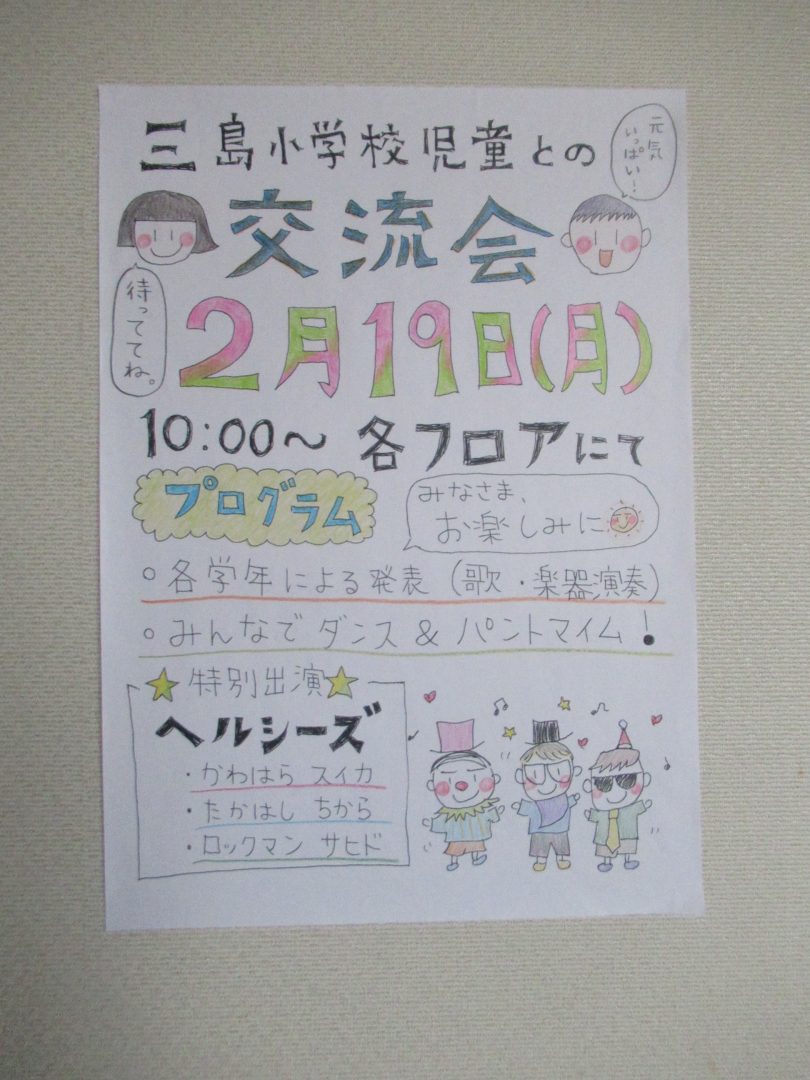 三島小学校児童との
元気
いっぱい!
交流会
待っててね。
2月19日(月)
10:00~ 各フロアにて
プログラム
みなさま、
お楽しみに
○各学年による発表(歌・楽器演奏)
○みんなでダンス&パントマイム!
★特別出演★
ヘルシーズ
・かわはら スイカ
・たかはし ちから
・ロックマン サヒド